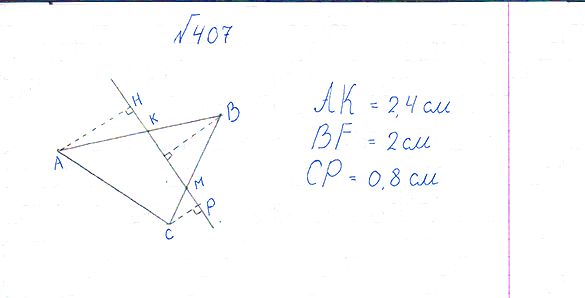 №407
H
K
B
A
M
P
C
AK = 2,4 см
BF = 2 см
CP = 0,8 см